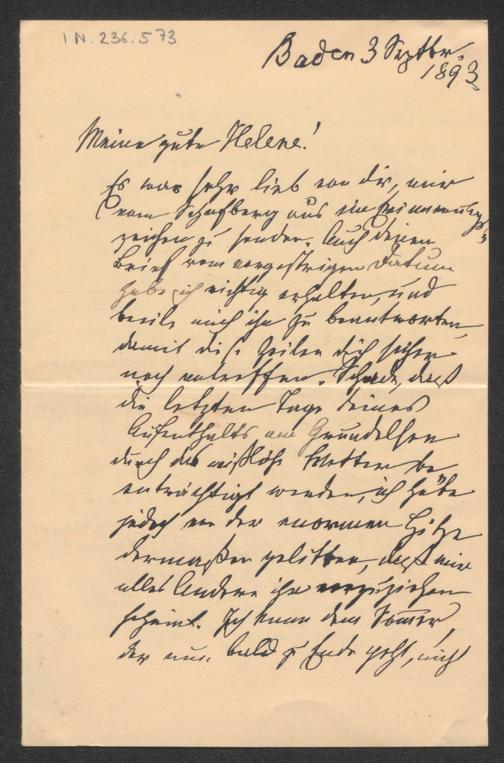 I.N. 236.573
Baden 3 Septbr.
1893.
Meine gute Helene!
Es war sehr lieb von dir, mir
vom Schafberg aus ein Erinnerungs-
zeichen zu senden. Auch deinen
Brief vom vorgestrigen Datum
habe ich richtig erhalten, und
beeile mich ihn zu beantworten,
damit diese Zeilen dich sicher
noch antreffen. Schade, daß
die letzten Tage deines
Aufenthalts am Grundelsee
durch das mißliche Wetter be-
einträchtigt werden, ich habe
jedoch von der enormen Hitze
dermaßen gelitten, daß mir
alles Andere ihr vorzuziehen
scheint. Ich kann dem Sommer,
der nun bald zu Ende geht, nicht